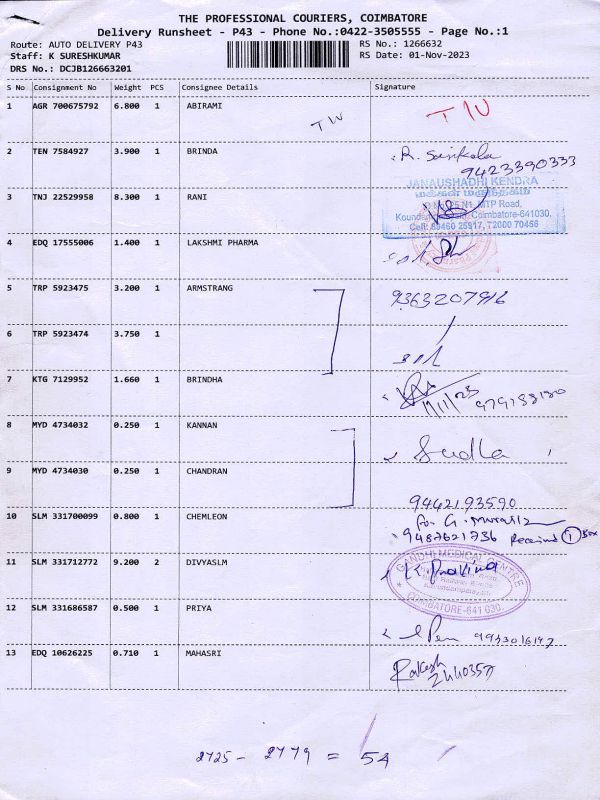 THE PROFESSIONAL COURIERS, COIMBATORE
Delivery Runsheet - P43 - Phone No.:0422-3505555 - Page No.:1
Route: AUTO DELIVERY P43 RS No.: 1266632
Staff: K SURESHKUMAR RS Date: 01-Nov-2023
DRS No.: DCJB126663201
S No Consignment No Weight PCS Consignee Details Signature
1 AGR 700675792 6.800 1 ABIRAMI
TW TW
2 TEN 7584927 3.900 1 BRINDA R. Sasikala
9423390333
JANAUSHADHI KENDRA
மக்கள் மருந்தகம்
3 TNJ 22529958 8.300 1 RANI MTP Road,
Coimbatore-641030.
72000 70456
4 EDQ 17555006 1.400 1 LAKSHMI PHARMA
5 TRP 5923475 3.200 1 ARMSTRANG 9363207916
6 TRP 5923474 3.750 1
7 KTG 7129952 1.660 1 BRINDHA
1/11/23
8 MYD 4734032 0.250 1 KANNAN
9 MYD 4734030 0.250 1 CHANDRAN
9442193590
10 SLM 331700099 0.800 1 CHEMLEON for G. Murali
9487621736 Received 1 Box
11 SLM 331712772 9.200 2 DIVYASLM GANDHI MEDICAL CENTRE
COIMBATORE-641 030.
12 SLM 331686587 0.500 1 PRIYA
13 EDQ 10626225 0.710 1 MAHASRI Rakesh
2440357
2725 - 2779 = 54